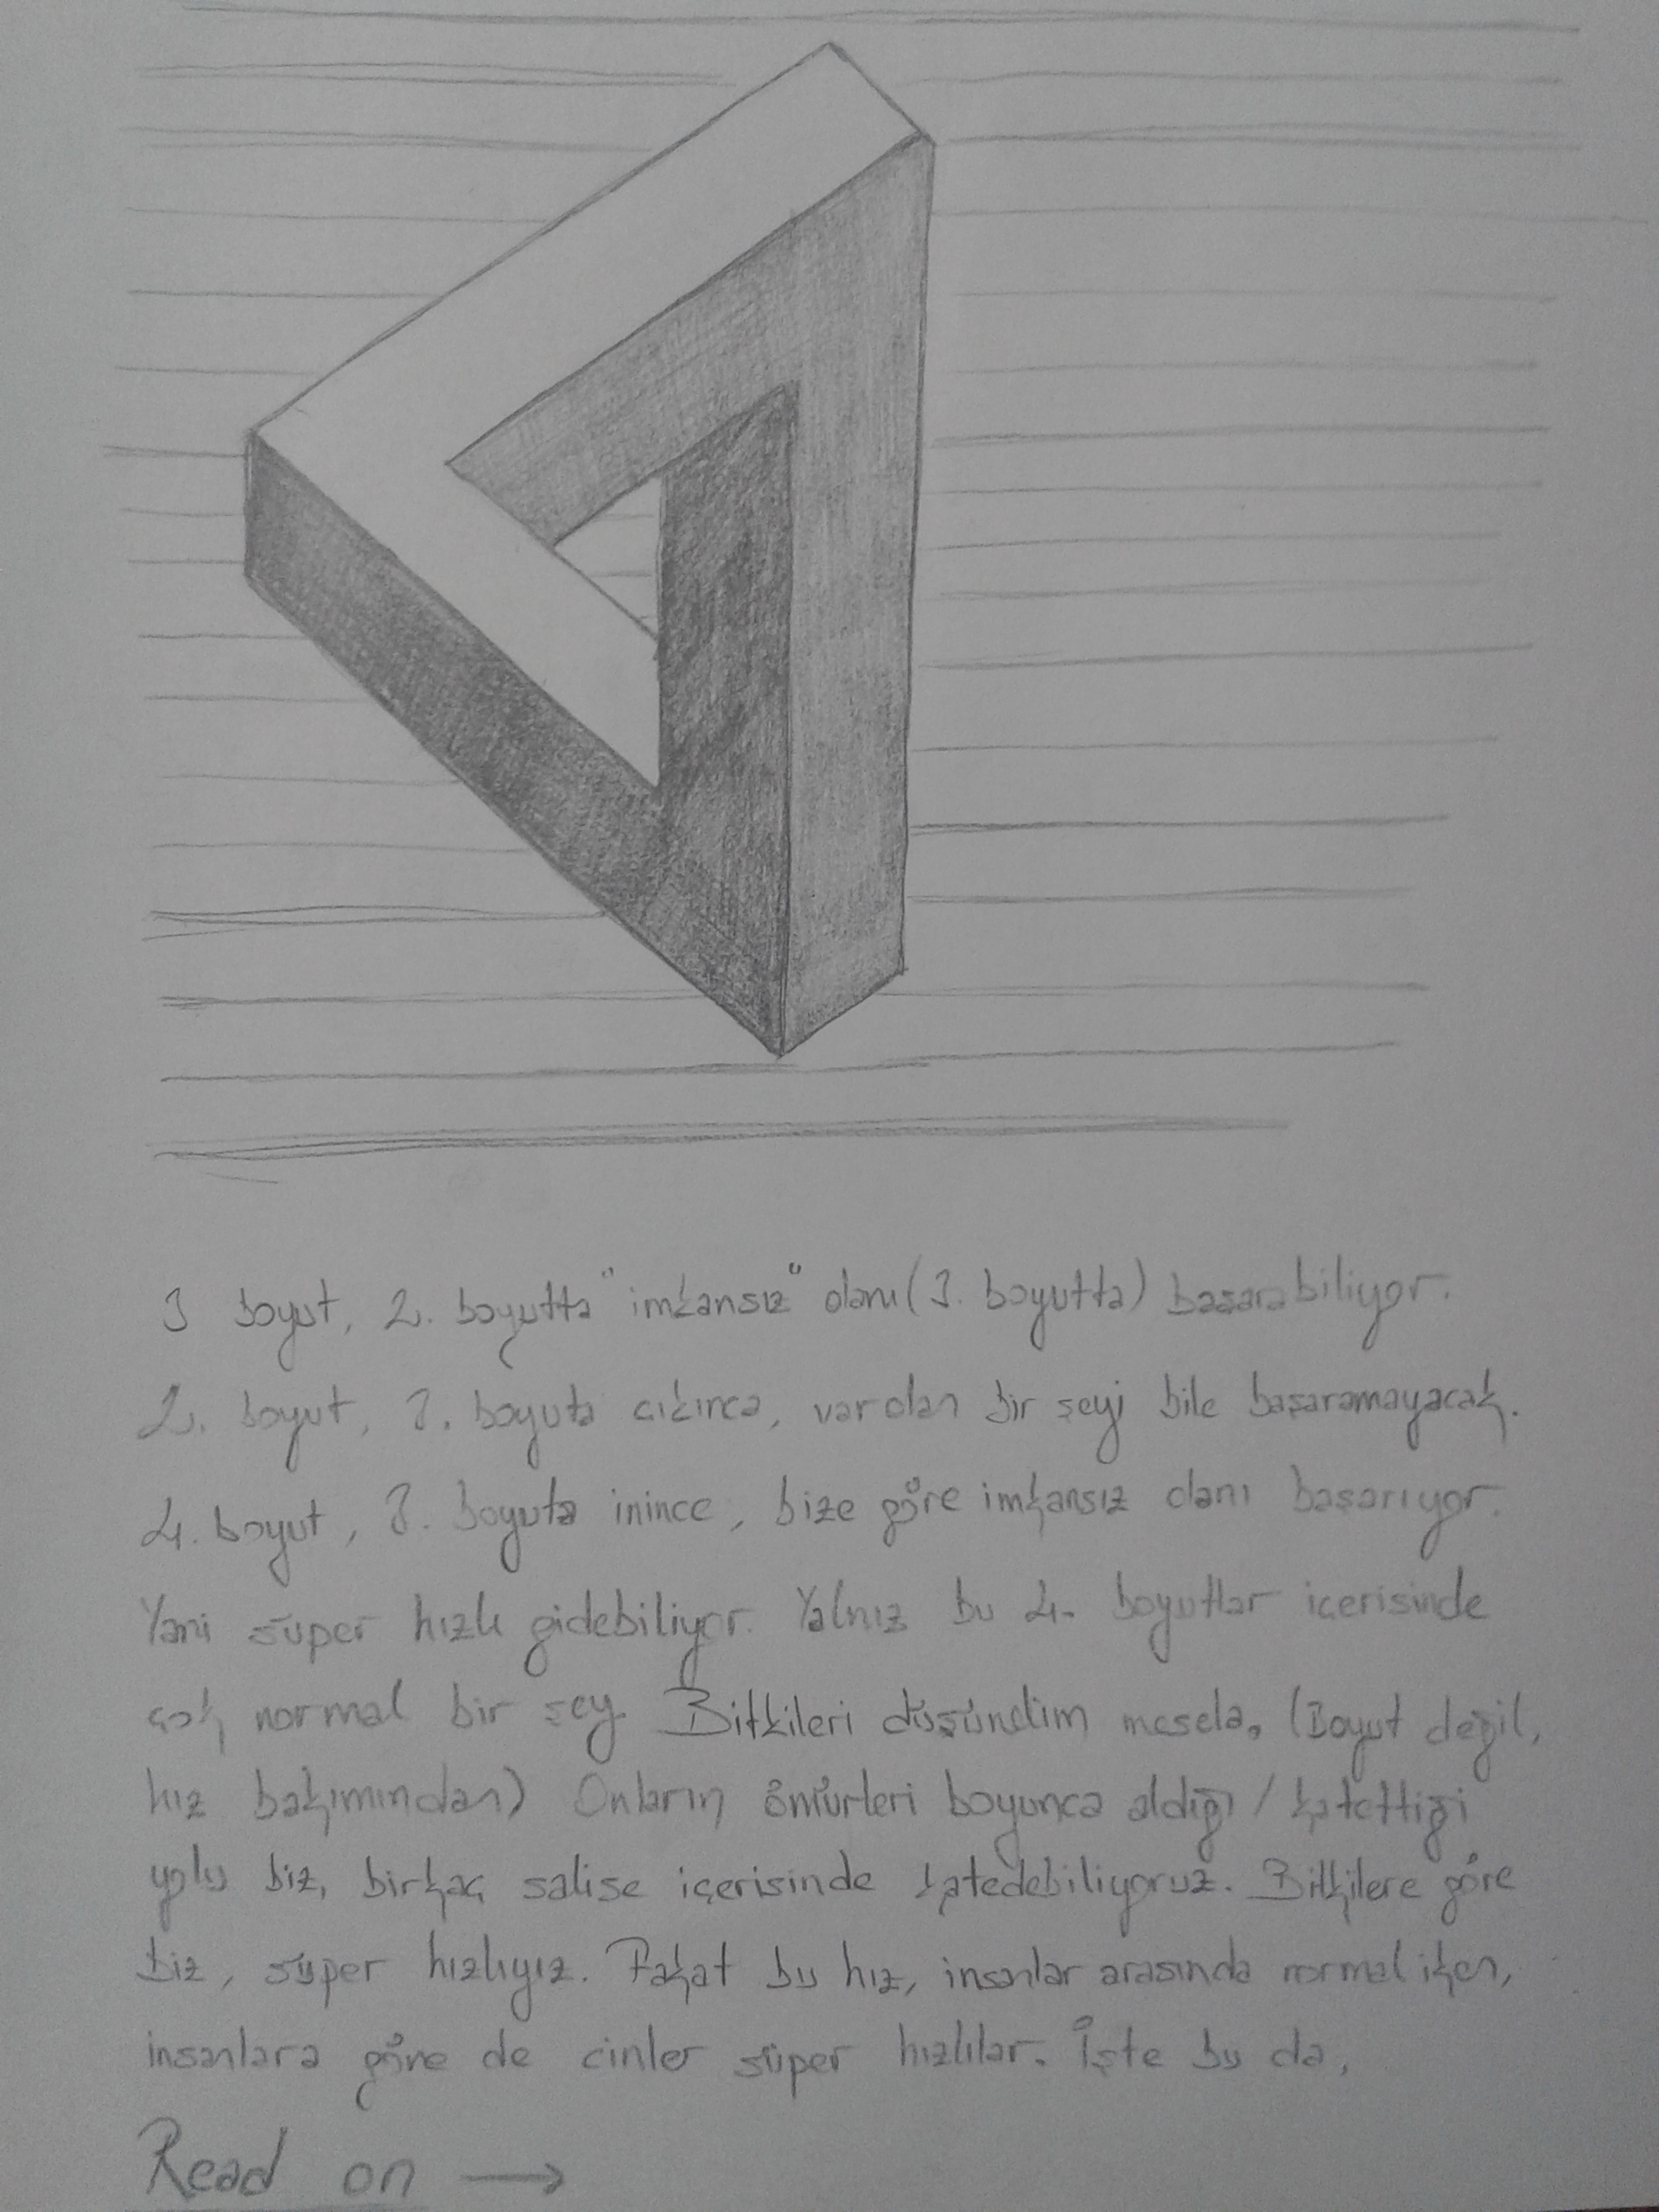 3 boyut, 2. boyutta "imkansız" olanı (3. boyutta) başarabiliyor.
2. boyut, 3. boyuta çıkınca, var olan bir şeyi bile başaramayacak.
4. boyut, 3. boyuta inince, bize göre imkansız olanı başarıyor.
Yani süper hızlı gidebiliyor. Yalnız bu 4. boyutlar içerisinde
çok normal bir şey. Bitkileri düşündüm mesela. (Boyut değil,
hız bakımından) Onların ömürleri boyunca aldığı / katettiği
yolu biz, birkaç salise içerisinde katedebiliyoruz. Bitkilere göre
biz, süper hızlıyız. Fakat bu hız, insanlar arasında normal iken,
insanlara göre de cinler süper hızlılar. İşte bu da,
Read on →